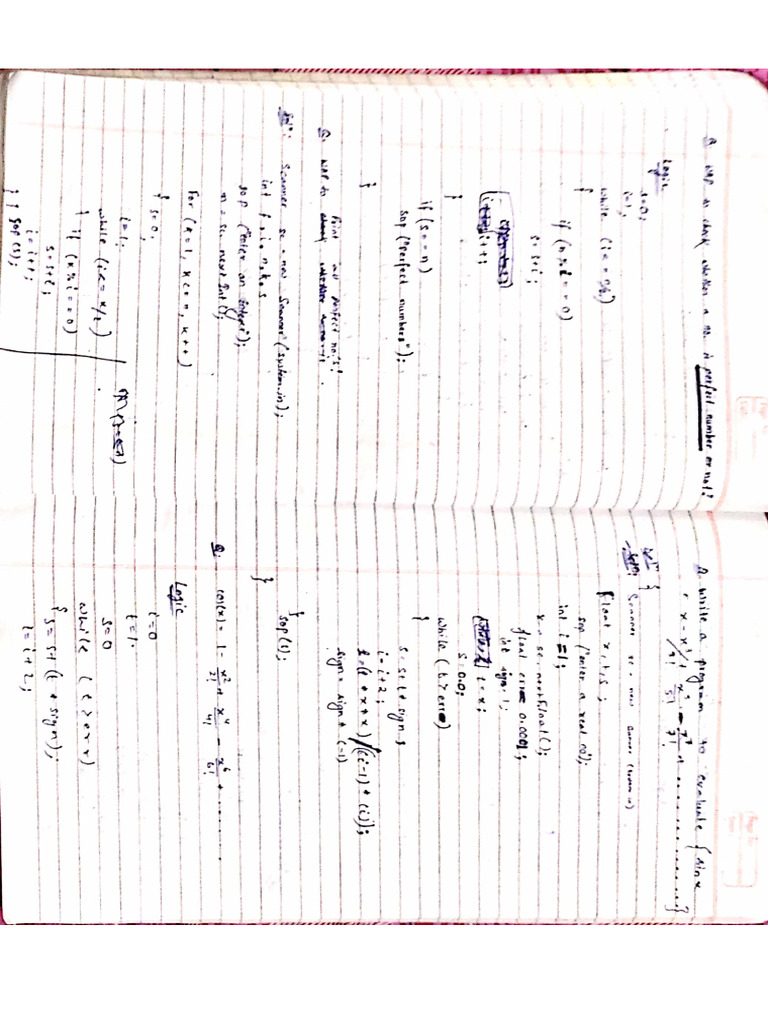 Q. WAP to check whether a no. is perfect number or not?
Logic
s=0;
i=1;
while (i<=n/2)
{
if (n%i==0)
s=s+i;
i++;
}
if (s==n)
sop ("perfect numbers");
}
Q. WAP to print perfect no.s!
Soln: Scanner sc = new Scanner (system.in);
int
sop ("enter an integer");
n = sc. next Int();
For (x=1, x<=n, x++)
{ s=0,
i=1.
while (i<=x/2)
{ if (x%i==0)
s=s+i;
i=i+1;
} } sop(s);
Q. Write a program to evaluate { sin x
= x - x³/3! + x⁵/5! - x⁷/7! + ........}
{
Soln: Scanner sc = new Scanner (system.in)
float x, t, s ;
sop ("enter a real no");
int i=1;
x = sc. nextFloat();
float err= 0.0001;
int sign=1;
t=x;
s=0.0;
while (t>err)
{
s= s+t*sign;
i=i+2;
t=(t*x*x)/((i-1)*(i));
sign= sign*(-1)
}
sop(s);
}
Q. cos(x) = 1 - x²/2! + x⁴/4! - x⁶/6! + ........
Logic
i=0
t=1.
s=0
while (t>err)
{ s=s+(t*sign);
i=i+2;